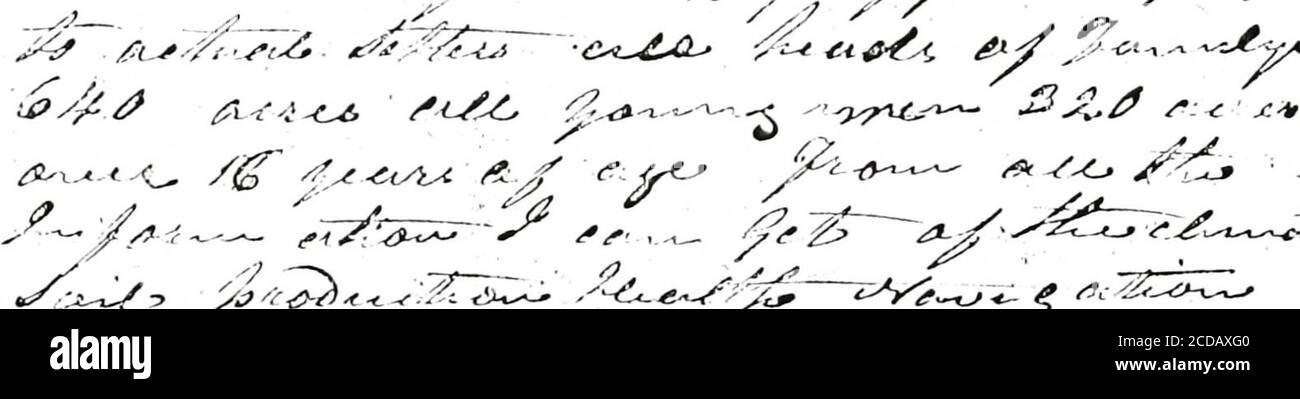 to actual settlers all heads of Family
640 acres all young men 320 acres
over 16 years of age From all the
Inform ation I can Get of the clima
Soil Production Health Navigation
alamy
Image ID: 2CDAXG0
www.alamy.com